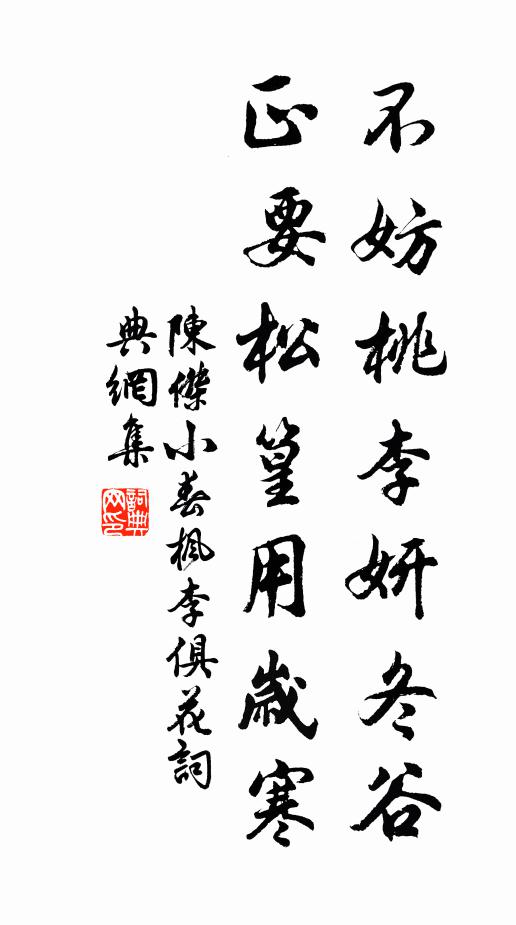 不妨桃李妍冬谷
正要松篁用歲寒
陳傑小春楓李俱花詞
典網集
詞典網印